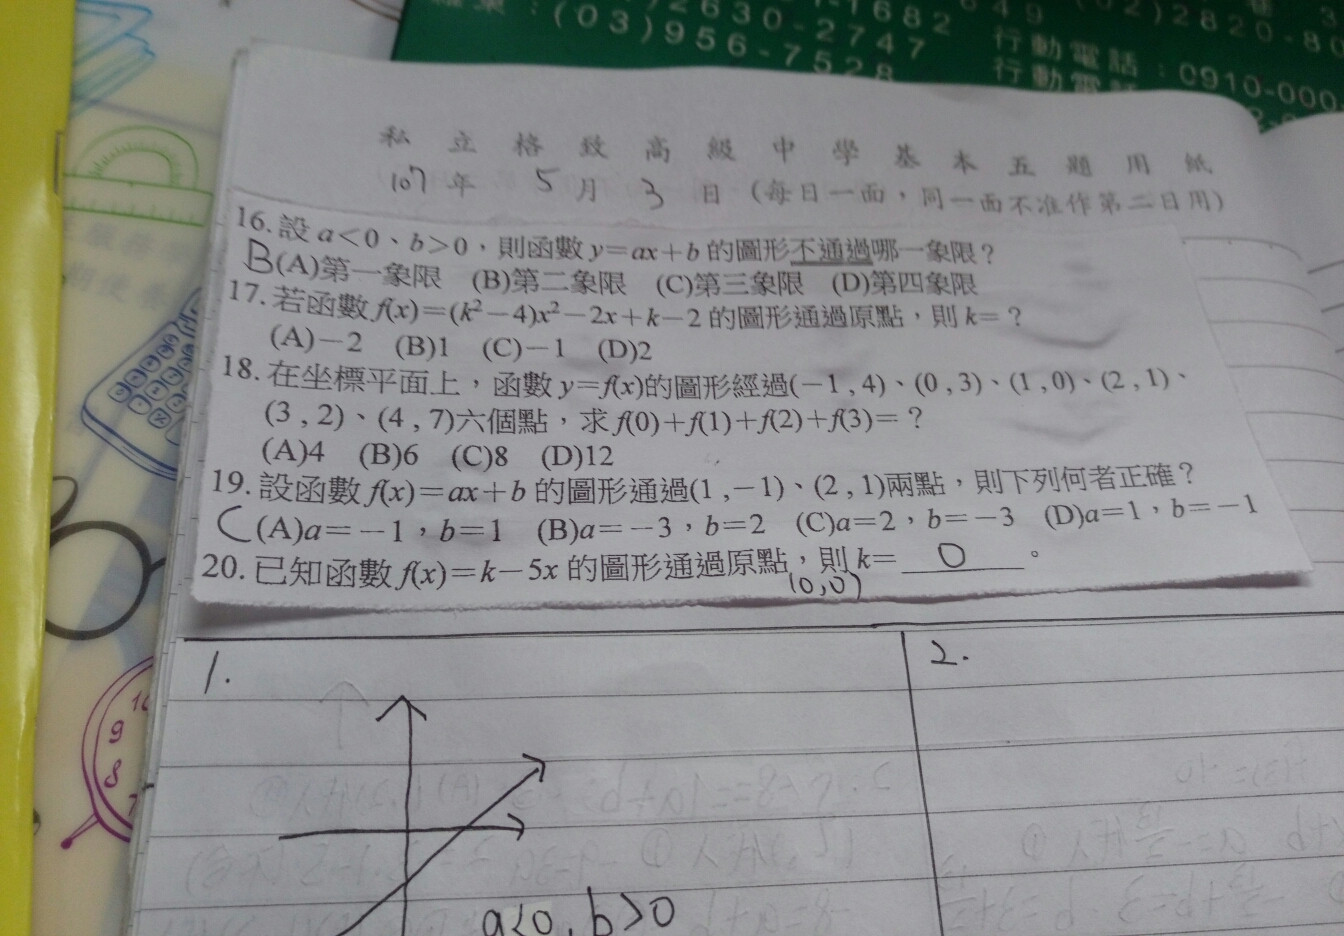 2630-2747
(03)956-7528
行動電話：0910-000
行動電
私立格致高級中學基本五題用紙
107年 5月 3日（每日一面，同一面不准作第二日用）
16. 設 a<0、b>0，則函數 y=ax+b 的圖形不通過哪一象限？
B (A)第一象限 (B)第二象限 (C)第三象限 (D)第四象限
17. 若函數 f(x)=(k²−4)x²−2x+k−2 的圖形通過原點，則 k=？
(A)−2 (B)1 (C)−1 (D)2
18. 在坐標平面上，函數 y=f(x)的圖形經過(−1 , 4)、(0 , 3)、(1 , 0)、(2 , 1)、
(3 , 2)、(4 , 7)六個點，求 f(0)+f(1)+f(2)+f(3)=？
(A)4 (B)6 (C)8 (D)12
19. 設函數 f(x)=ax+b 的圖形通過(1 ,−1)、(2 , 1)兩點，則下列何者正確？
C (A)a=−1，b=1 (B)a=−3，b=2 (C)a=2，b=−3 (D)a=1，b=−1
20. 已知函數 f(x)=k−5x 的圖形通過原點，則 k= 0 。
(0,0)
1.
2.
a<0, b>0